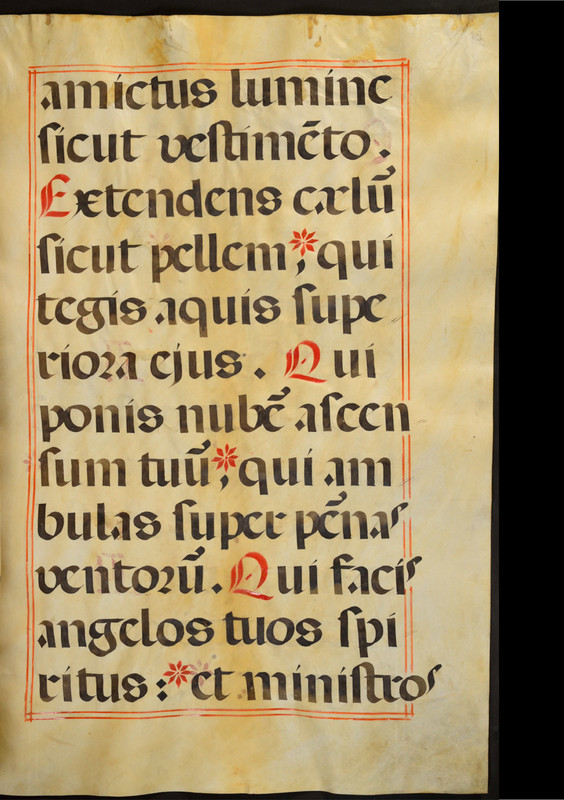 amictus lumine
ſicut veſtimēto.
Extendens cælū
ſicut pellem *, qui
tegis aquis ſupe
rioꝛa ejus. Qui
ponis nubē aſcen
ſum tuū *, qui am
bulas ſuper pēnas
ventoꝛū. Qui facis
angelos tuos ſpi
ritus : * et miniſtros